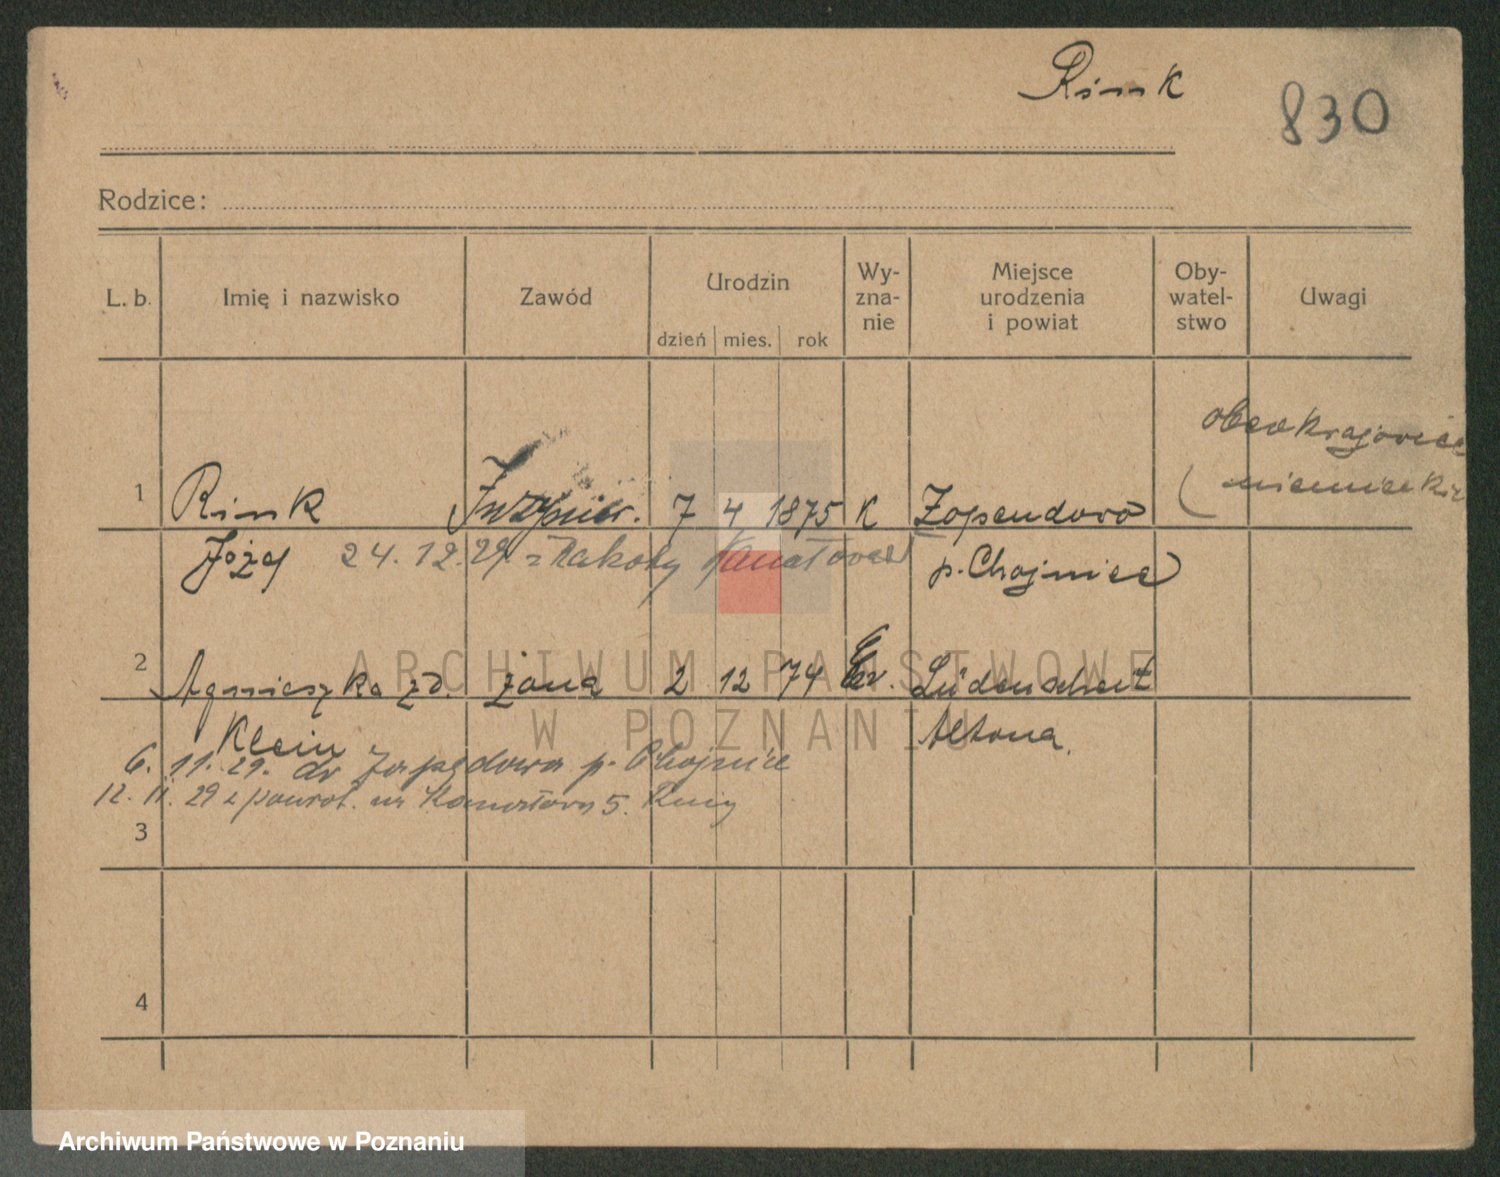 Rink
830
Rodzice:
L. b. Imię i nazwisko Zawód Urodzin dzień mies. rok Wy-zna-nie Miejsce urodzenia i powiat Oby-watel-stwo Uwagi
obcokrajowiec
(niemiecki
1 Rink Inżynier. 7 4 1875 K
Józef 24.12.29 z p. Chojnice
2 Agnieszka zd. żona 2 12 74 Ew. Lüdenscheit
Klein Altona.
6. 11. 29. do p. Chojnice
12. 11. 29 z powrot. na 5.
3
4
ARCHIWUM PAŃSTWOWE
W POZNANIU
Archiwum Państwowe w Poznaniu